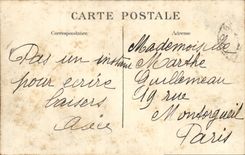 CARTE POSTALE
Correspondance
Adresse
Pas un instant
pour écrire
baisers
Mademoiselle
Marthe
Guillemeau
19 rue
Montorgueil
Paris